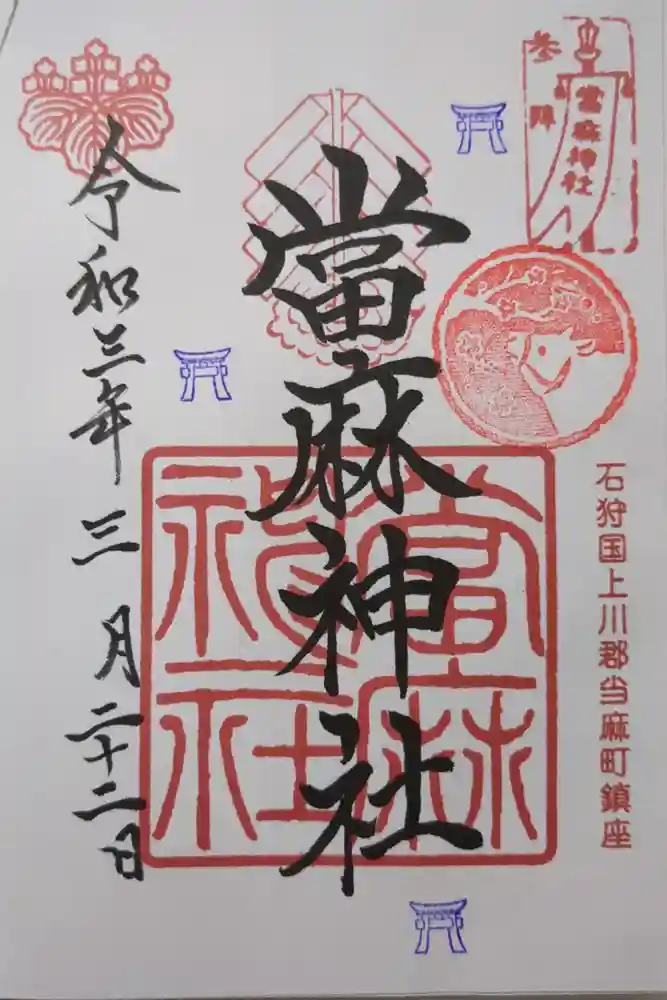 参拝
當麻神社
石狩国上川郡当麻町鎮座
當麻神社
當麻神社
令和三年三月二十二日